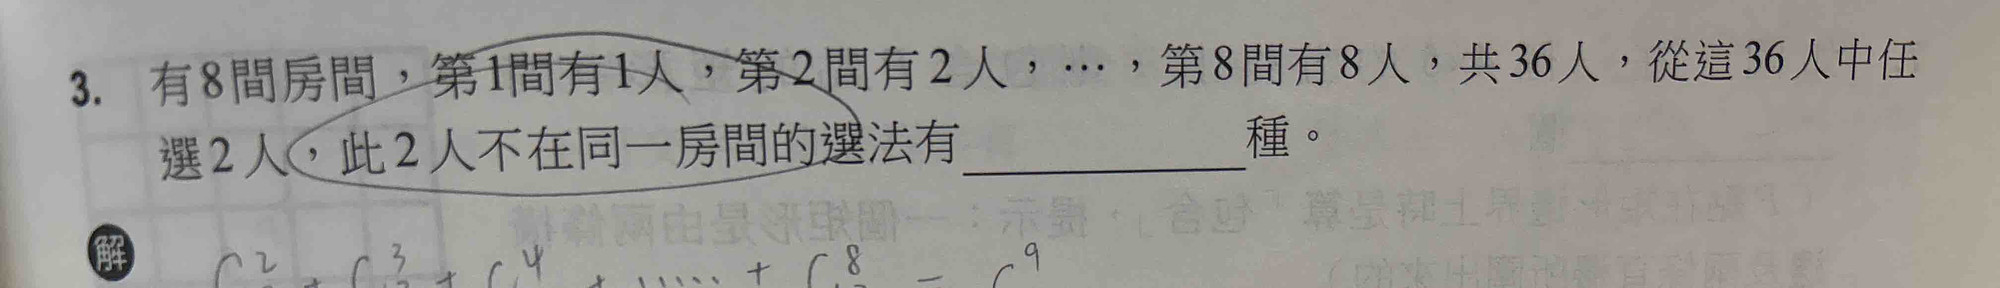 3. 有8間房間，第1間有1人，第2間有2人，…，第8間有8人，共36人，從這36人中任
選2人，此2人不在同一房間的選法有＿＿＿＿＿＿種。
解
C 2 + C 3 + C 4 + ····· + C 8 = C 9